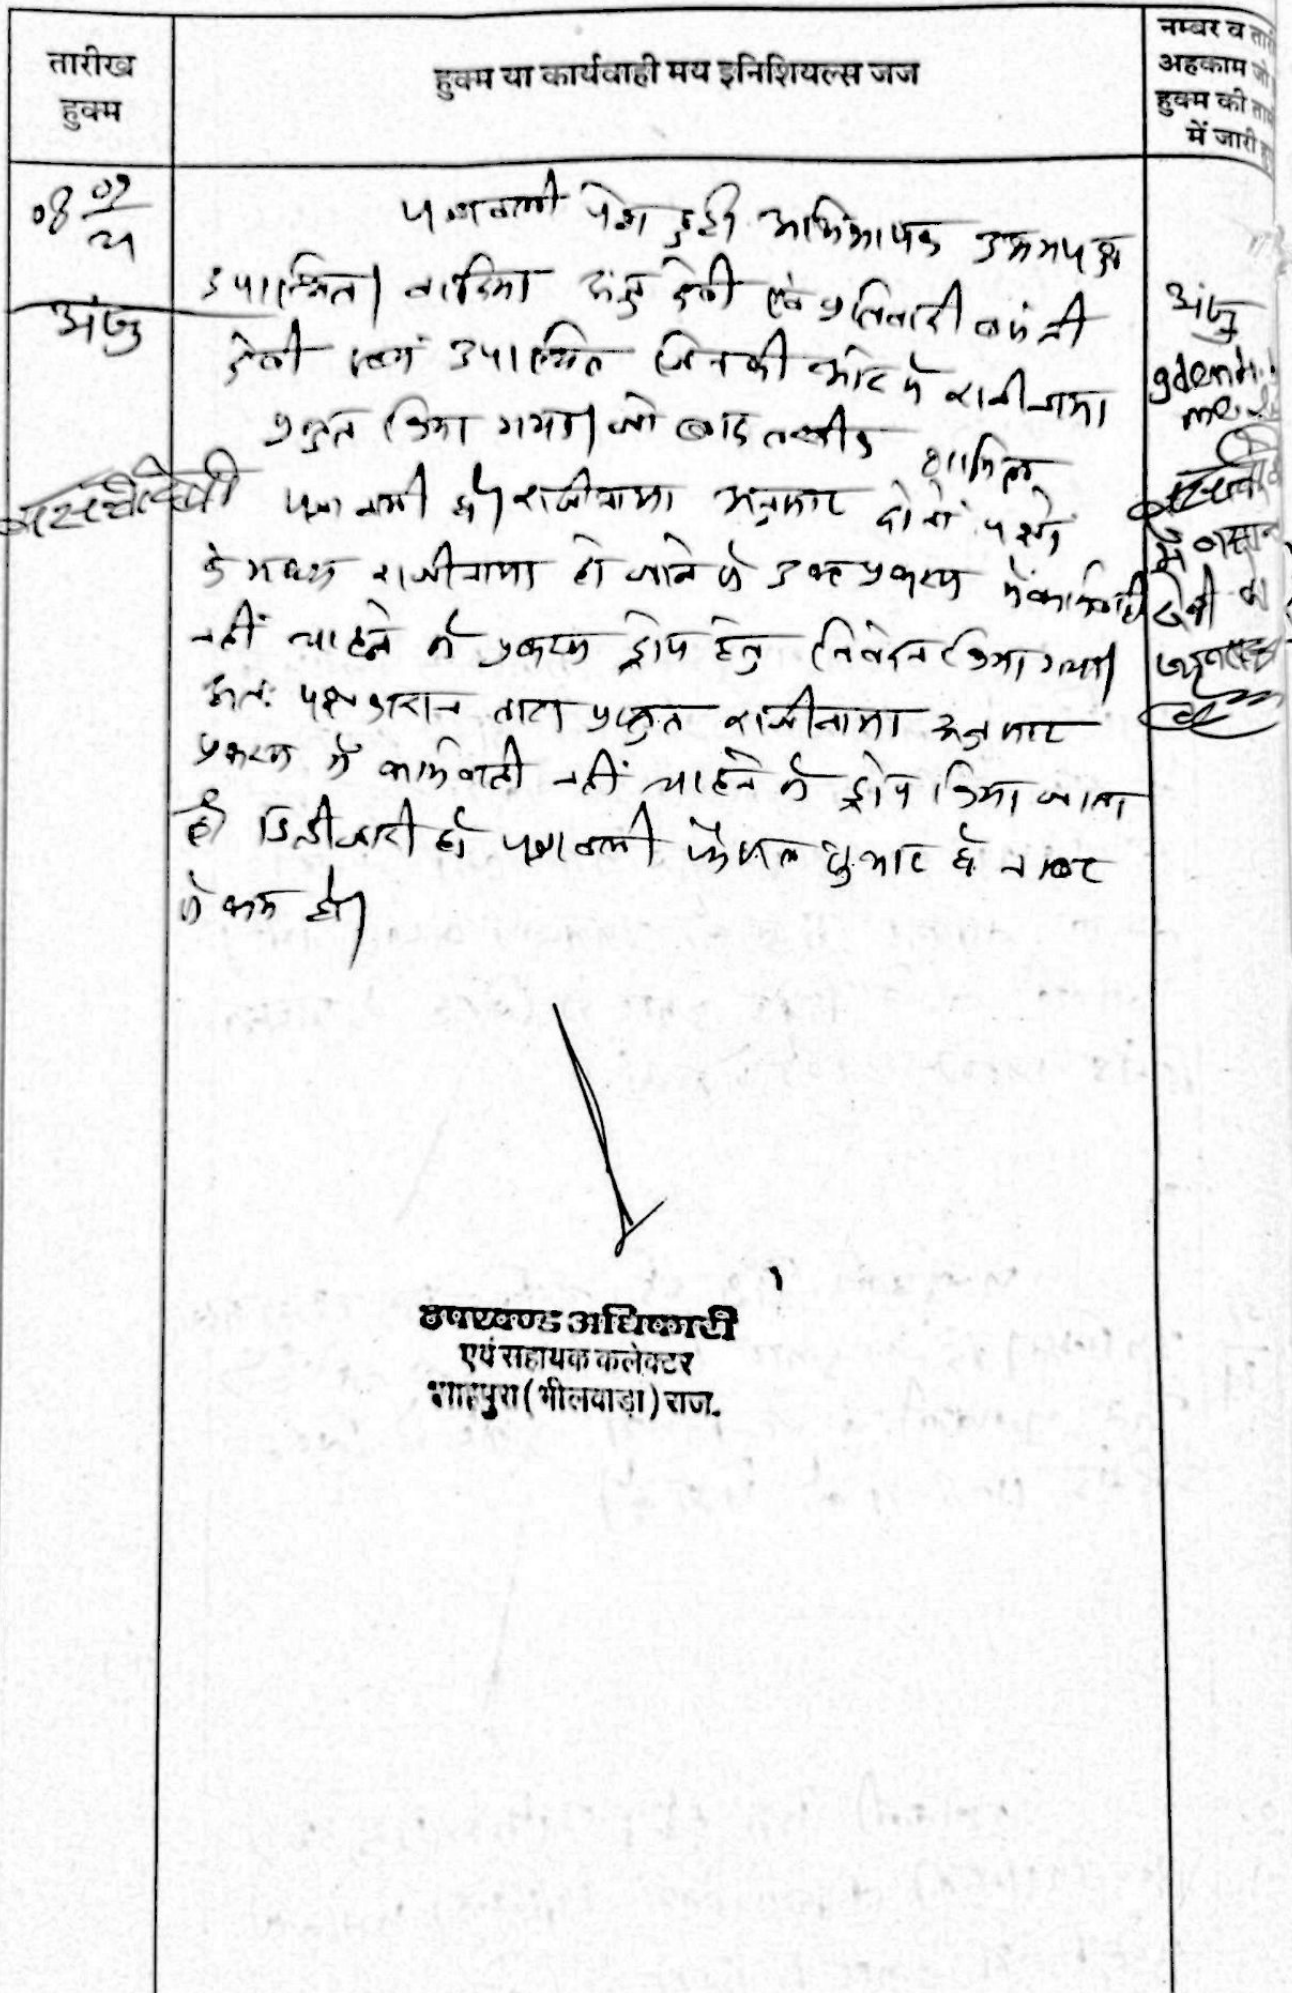 तारीख
हुक्म
हुक्म या कार्यवाही मय इनिशियल्स जज
नम्बर व
अहकाम जो
हुक्म की
में जारी
08 07
पत्रावली पेश हुई। अभिभाषक उभयपक्ष
उपस्थित। वादिया अंजु देवी एवं प्रतिवादी बसंती
देवी स्वयं उपस्थित जिनकी ओर से राजीनामा
प्रस्तुत किया गया। जो बाद तस्दीक शामिल
पत्रावली हो। राजीनामा अनुसार दोनों पक्षों
के मध्य राजीनामा हो जाने से उक्त प्रकरण में कार्यवाही
नहीं चाहने से प्रकरण ड्रोप हेतु निवेदन किया गया।
अतः पक्षकारान द्वारा प्रस्तुत राजीनामा अनुसार
प्रकरण में कार्यवाही नहीं चाहने से ड्रोप किया जाता
है। डिक्री जारी हो। पत्रावली फैसल शुमार हो नम्बर
से कम हो।
अंजु
बसंती देवी
अंजु
देवी
उपखण्ड अधिकारी
एवं सहायक कलेक्टर
शाहपुरा (भीलवाड़ा) राज.